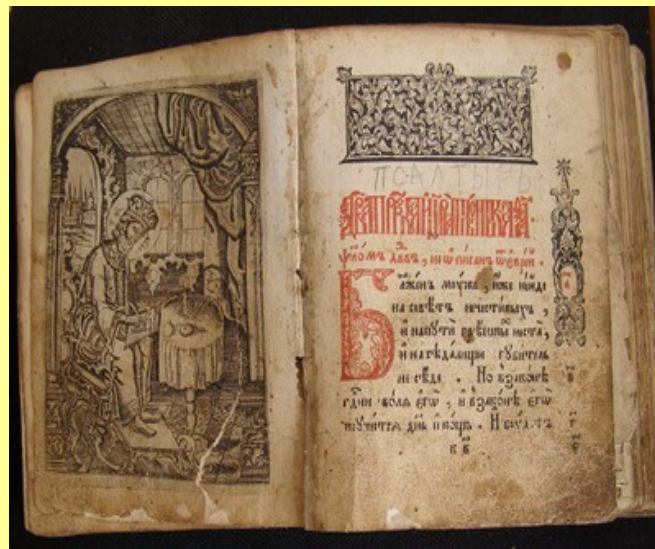 ПСАЛТЫРЬ
Ѱало́мъ дв҃дꙋ, не ѡ҆пи́санъ ѿ є҆врє́й.
Бл҃же́нъ мꙋ́жъ, и҆́же не и҆́де
на совѣ́тъ нечести́выхъ,
и҆ на пꙋтѝ грѣ́шныхъ не ста̀,
и҆ на сѣда́лищи гꙋби́тель
не сѣ́де. Но в̾ зако́нѣ
гд҇ни во́лѧ є҆гѡ̀, и҆ в̾ зако́нѣ є҆гѡ̀
поꙋчи́тсѧ де́нь и҆ но́щь. И҆ бꙋ́детъ